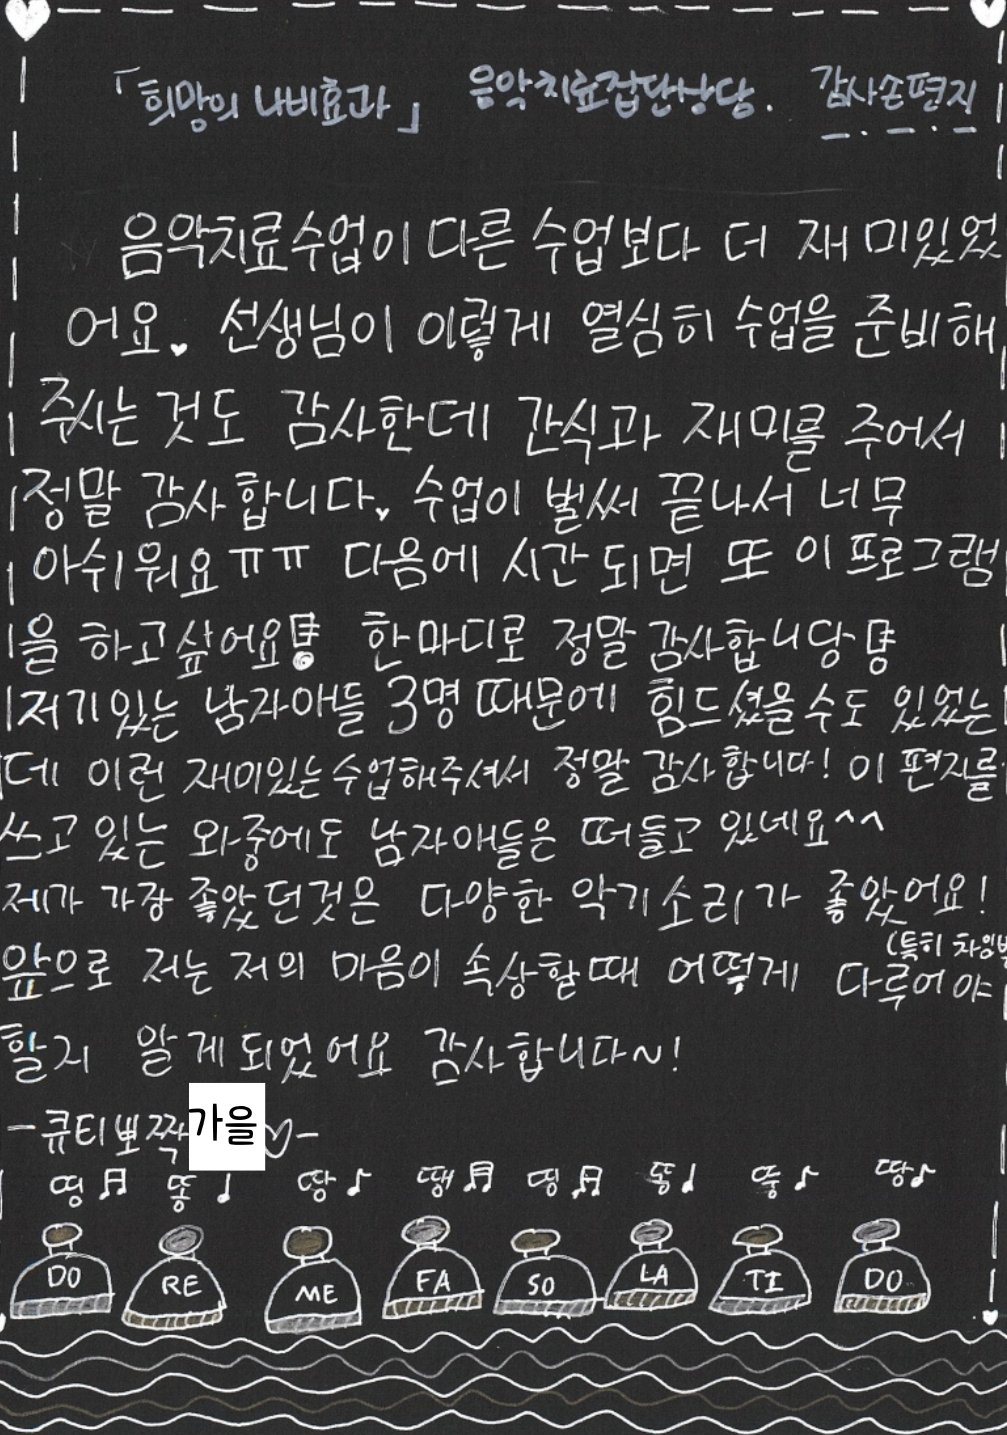 「희망의 나비효과」 음악치료집단상담. 감사손편지
음악치료수업이 다른 수업보다 더 재미있었
어요. 선생님이 이렇게 열심히 수업을 준비해
주시는 것도 감사한데 간식과 재미를 주어서
정말 감사합니다. 수업이 벌써 끝나서 너무
아쉬워요 ㅠㅠ 다음에 시간 되면 또 이 프로그램
을 하고싶어요! 한마디로 정말 감사합니당
저기있는 남자아들 3명 때문에 힘드셨을수도 있었는
데 이런 재미있는수업해주셔서 정말 감사합니다! 이 편지를
쓰고 있는 와중에도 남자애들은 떠들고 있네요^^
제가 가장 좋았던것은 다양한 악기소리가 좋았어요!
(특히 차임벨
앞으로 저는 저의 마음이 속상할때 어떻게 다루어야
할지 알게되었어요 감사합니다~!
-큐티뽀짝가을♡-
띵♬ 똥♩ 땅♪ 땡♬ 띵♬ 똥♩ 뚱♪ 땅♪
DO RE ME FA SO LA TI DO